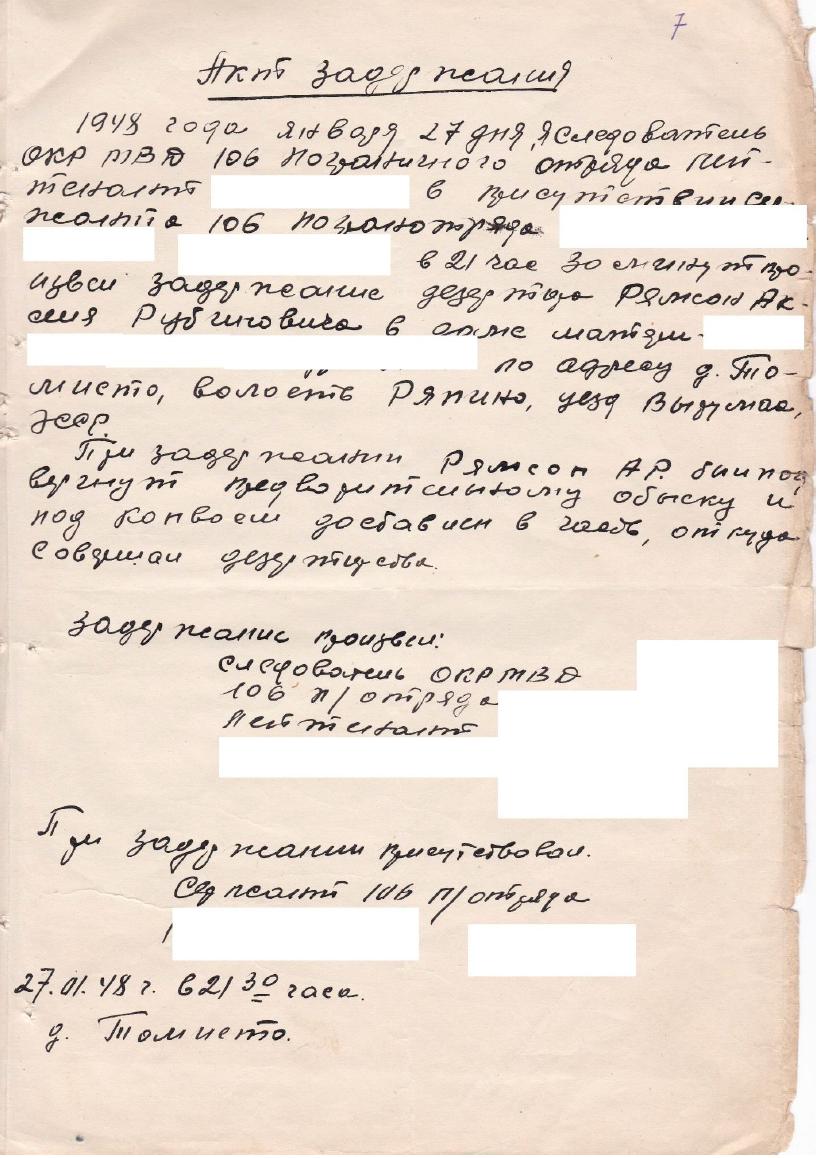 7
Акт задержания
1948 года января 27 дня, я следователь
ОКР МВД 106 Пограничного отряда лей-
тенант в присутствии сер-
жанта 106 погранотряда
в 21 час 30 минут про-
извел задержание дезертира Рямсон Ак-
селя Рубиновича в доме матери -
по адресу д. То-
мисто, волость Ряпино, уезд Вырумаа,
ЭССР.
При задержании Рямсон А.Р. был под
вергнут предварительному обыску и
под конвоем доставлен в часть, откуда
совершал дезертирство.
Задержание произвел:
следователь ОКР МВД
106 п/отряда
лейтенант
При задержании присутствовал.
Сержант 106 п/отряда
27.01.48 г. в 21 30 часа.
д. Томисто.